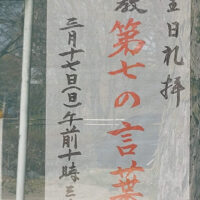 主日礼拝
教 第七の言葉
三月十七日(日)午前十時三